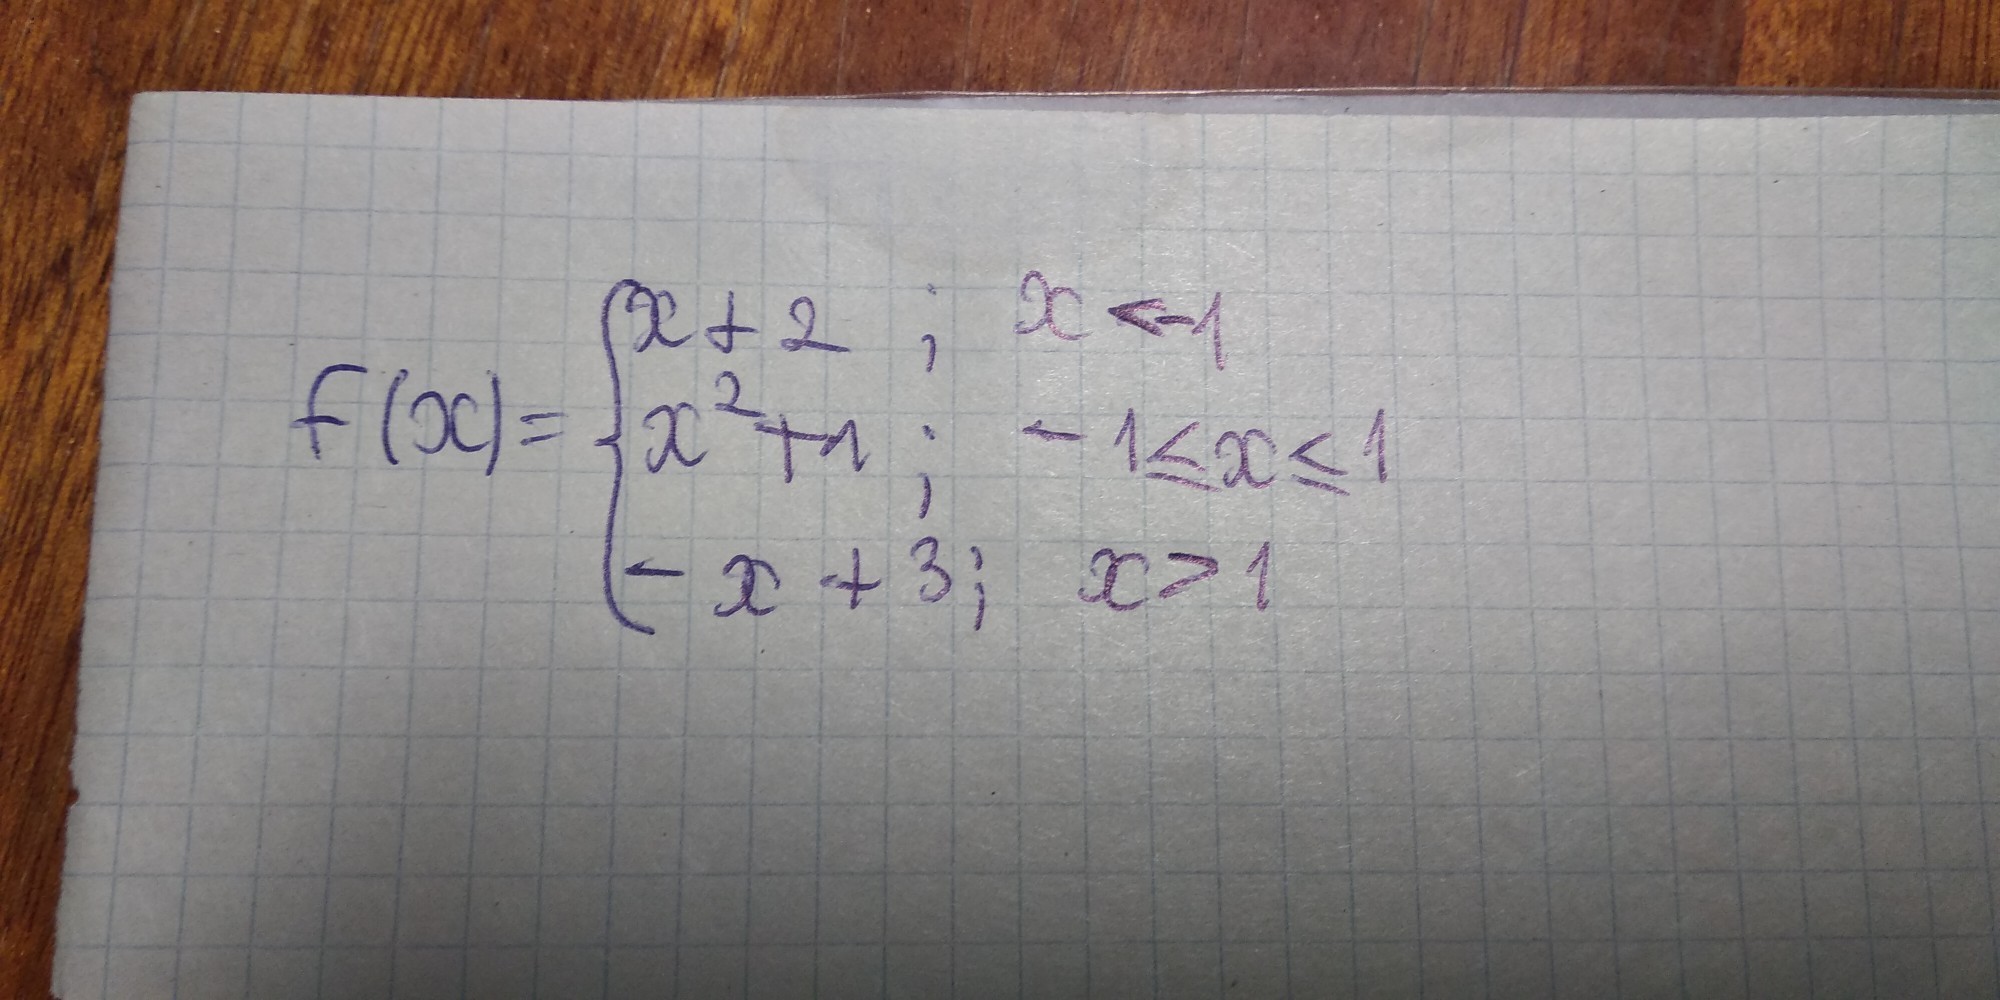 f(x) = { x + 2 ; x < -1
x² + 1 ; - 1 ≤ x ≤ 1
- x + 3 ; x > 1